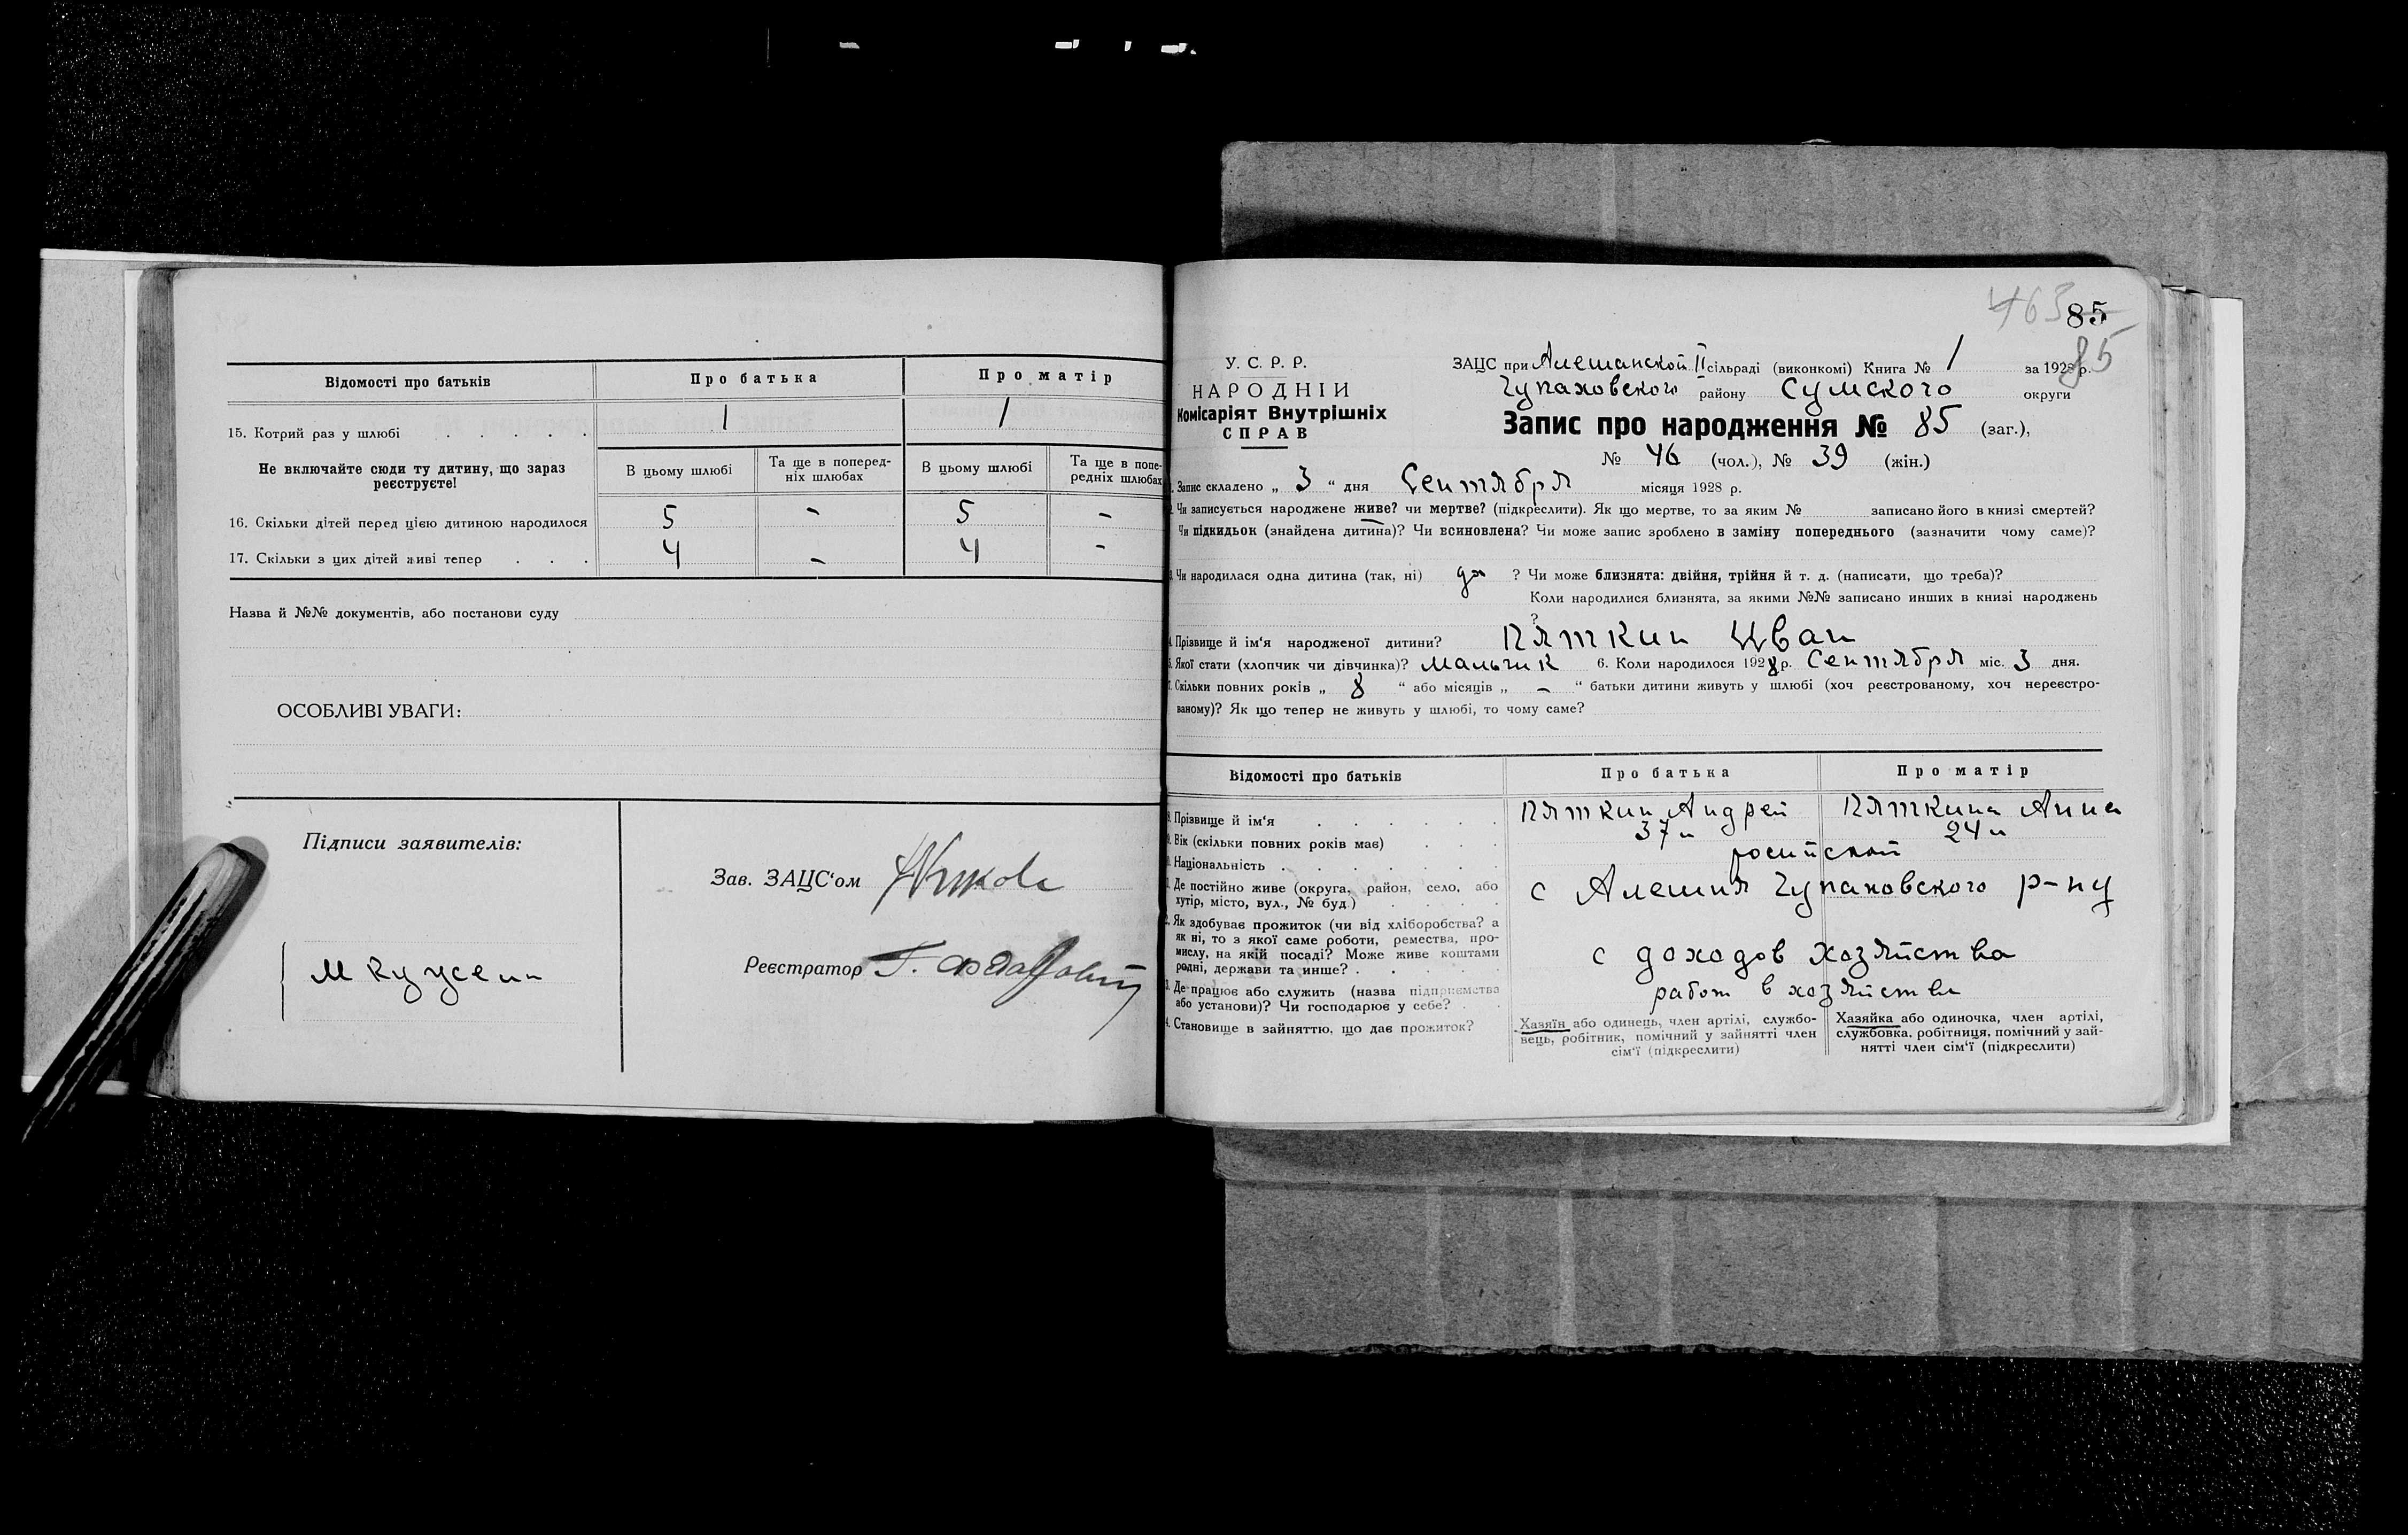 Відомості про батьків
Про батька
Про матір
15. Котрий раз у шлюбі
1
1
Не включайте сюди ту дитину, що зараз
реєструєте!
В цьому шлюбі
Та ще в поперед-
ніх шлюбах
В цьому шлюбі
Та ще в попе-
редніх шлюбах
16. Скільки дітей перед цією дитиною народилося
5 - 5 -
17. Скільки з цих дітей живі тепер
4 - 4 -
Назва й №№ документів, або постанови суду
ОСОБЛИВІ УВАГИ:
Підписи заявителів:
Зав. ЗАЦС‘ом
Реєстратор
463
85
85
У. С. Р. Р.
НАРОДНІЙ
Комісаріят Внутрішніх
СПРАВ
ЗАЦС при Алешанской II сільраді (виконкомі) Книга № 1 за 1928 р.
Чупаховского району Сумского округи
Запис про народження № 85 (заг.),
№ 46 (чол.), № 39 (жін.)
1. Запис складено „ 3 “ дня Сентября місяця 1928 р.
2. Чи записується народжене живе? чи мертве? (підкреслити). Як що мертве, то за яким № записано його в книзі смертей?
Чи підкидьок (знайдена дитина)? Чи всиновлена? Чи може запис зроблено в заміну попереднього (зазначити чому саме)?
3. Чи народилася одна дитина (так, ні) да ? Чи може близнята: двійня, трійня й т. д. (написати, що треба)?
Коли народилися близнята, за якими №№ записано инших в книзі народжень
?
4. Прізвище й ім‘я народженої дитини? Пяткин Иван
5. Якої стати (хлопчик чи дівчинка)? мальчик 6. Коли народилося 1928 р. Сентября міс. 3 дня.
7. Скільки повних років „ 8 “ або місяців „ - “ батьки дитини живуть у шлюбі (хоч реєстрованому, хоч нереєстро-
ваному)? Як що тепер не живуть у шлюбі, то чому саме?
Відомості про батьків
Про батька
Про матір
8. Прізвище й ім‘я
Пяткин Андрей
Пяткина Анна
9. Вік (скільки повних років має)
37 л
24 л
10. Національність
росийской
11. Де постійно живе (округа, район, село, або
хутір, місто, вул., № буд.)
с Алешня Чупаховского р-ну
12. Як здобуває прожиток (чи від хліборобства? а
як ні, то з якої саме роботи, ремества, про-
мислу, на якій посаді? Може живе коштами
родні, держави та инше?
с доходов хозяйства
13. Де працює або служить (назва підприємства
або установи)? Чи господарює у себе?
работ в хозяйстве
14. Становище в зайняттю, що дає прожиток?
Хазяїн або одинець, член артілі, службо-
вець, робітник, помічний у зайнятті член
сім‘ї (підкреслити)
Хазяйка або одиночка, член артілі,
службовка, робітниця, помічний у зай-
нятті член сім‘ї (підкреслити)